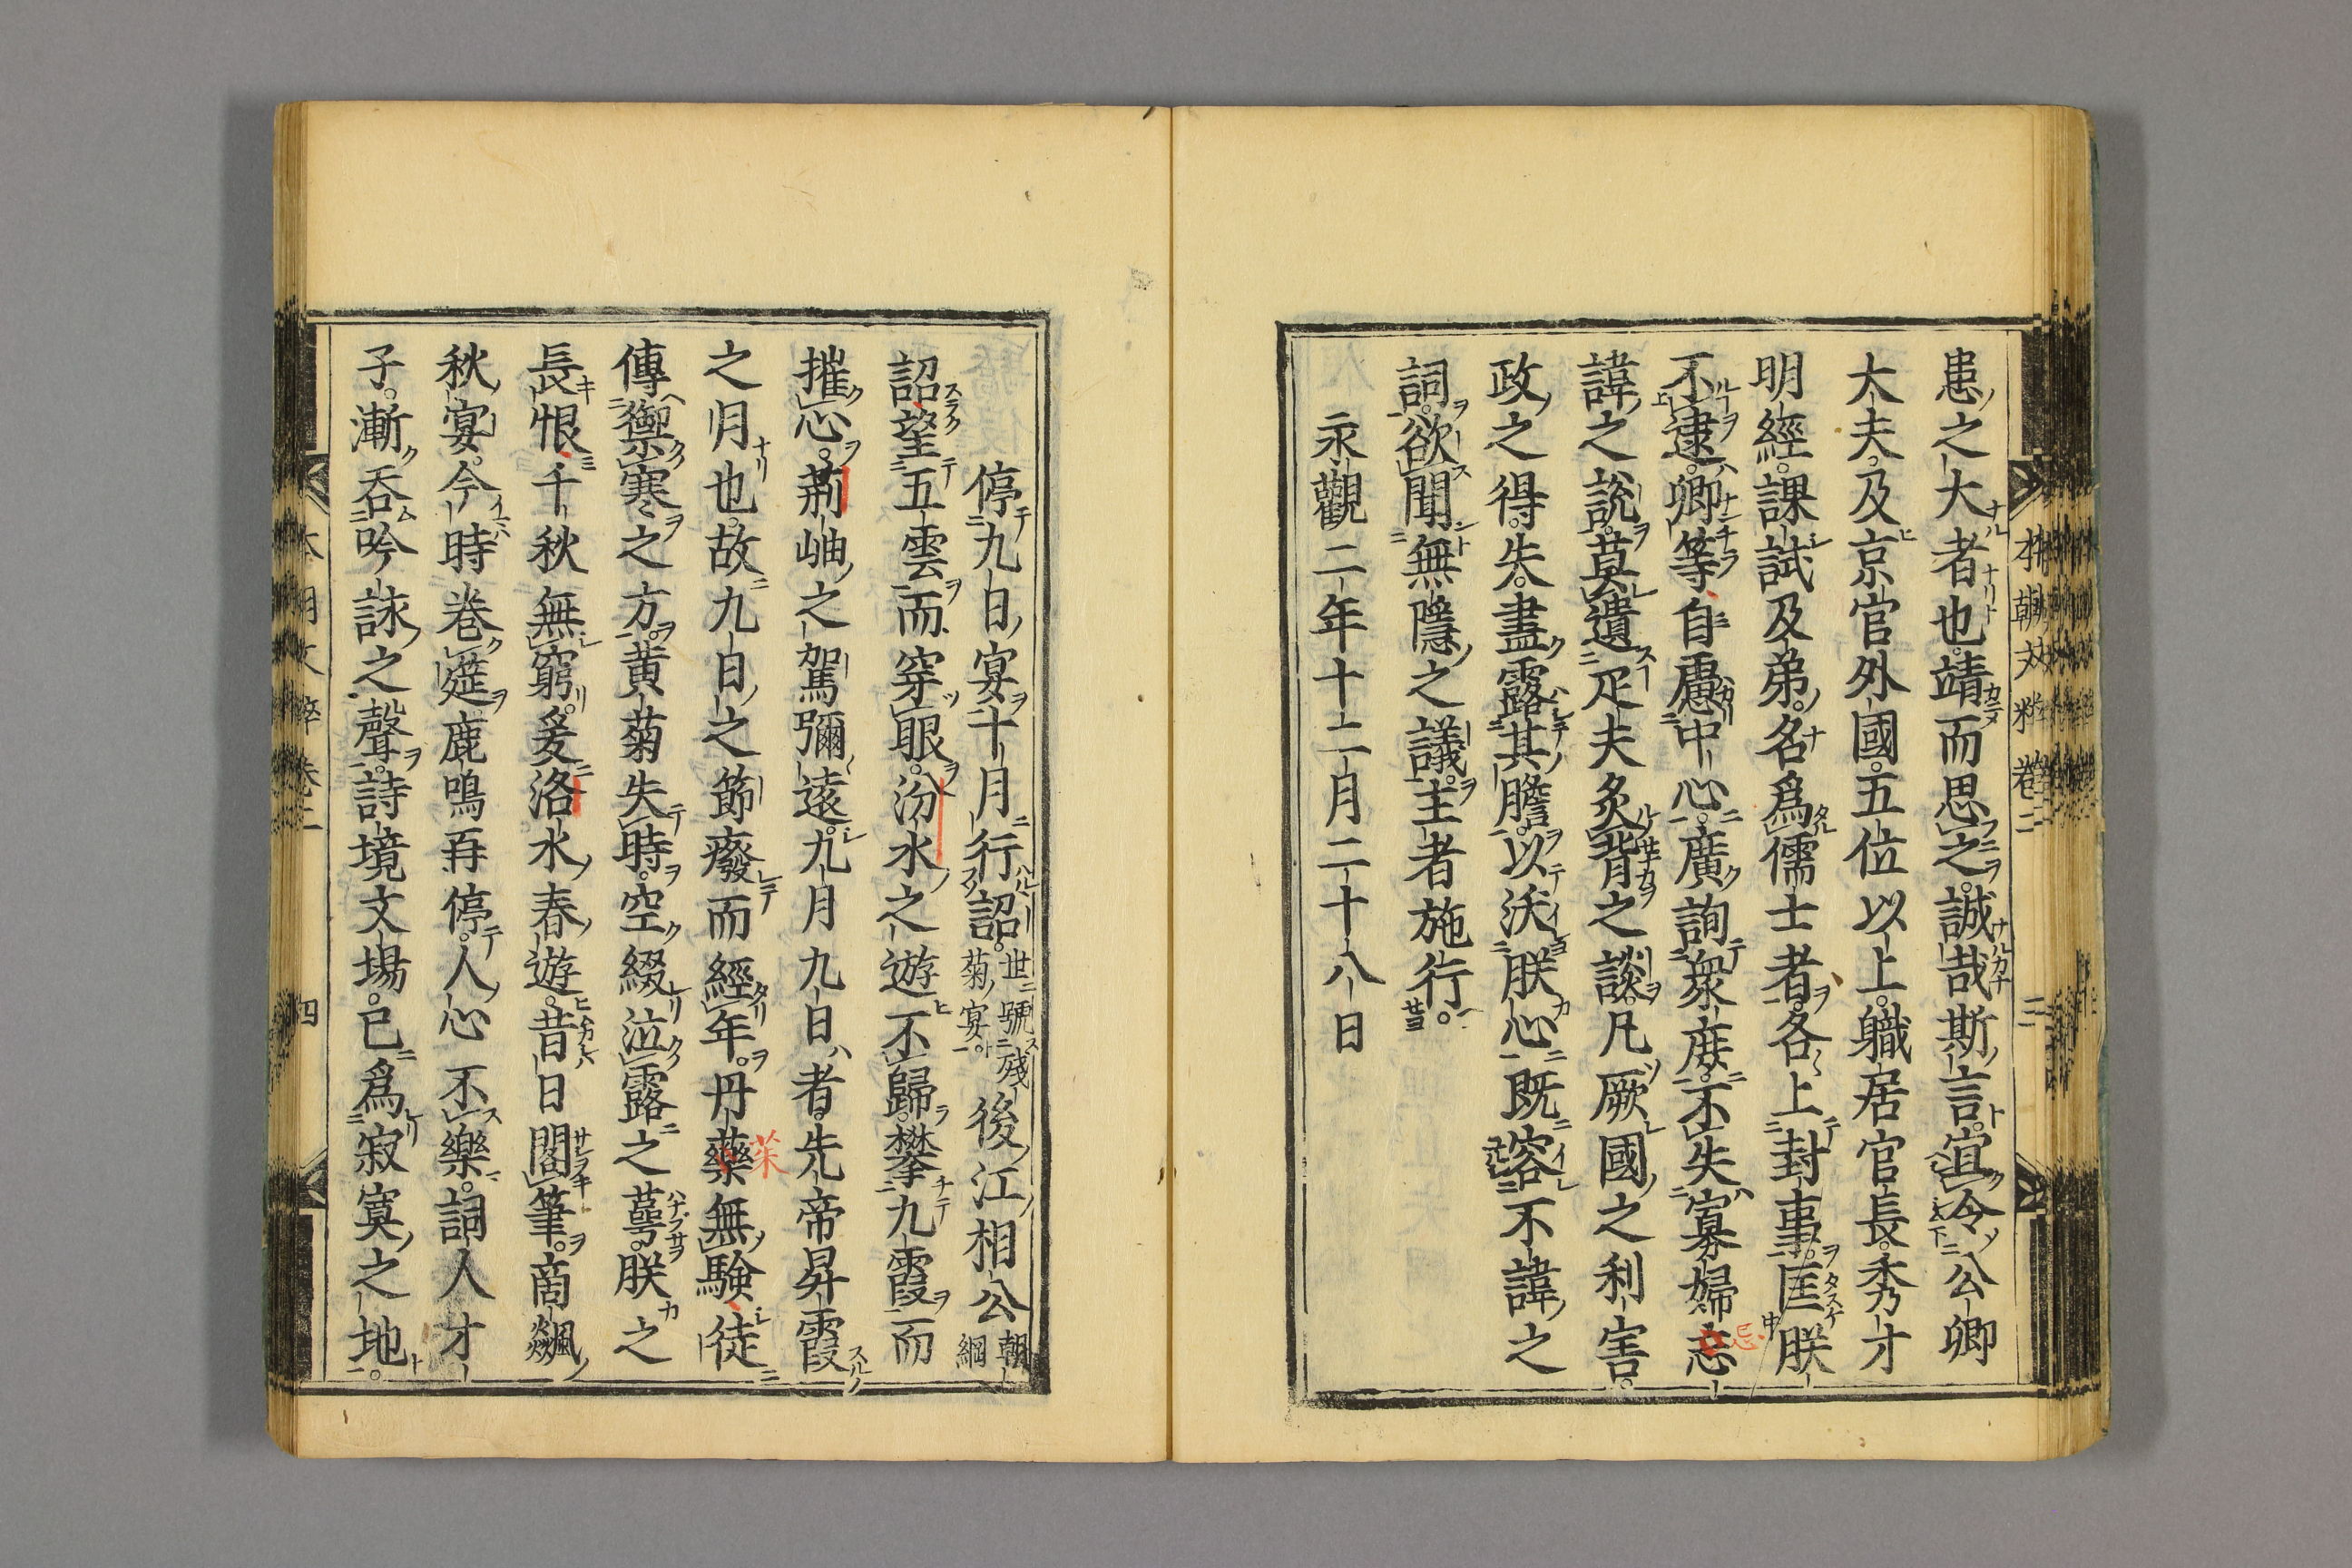 患之大者也靖而思之。誠哉斯言。宜令公卿
大夫。及京官外國。五位以上。職居官長。秀才
明經。課試及弟。名爲儒士者。各上封事。匡朕
不逮。卿等自慮中心。廣詢衆庶。不失寡婦忘
忌
諱之說。莫遺疋夫炙背之談。凡厥國之利害。
政之得。失。盡露其膽。以沃朕心。既容不諱之
詞。欲聞無隱之議。主者施行。
永觀二年十二月二十八日
本朝文粹卷二
停九日宴十月行詔。世號殘菊宴。後江相公朝綱
詔望五雲而穿眼。汾水之遊不歸。攀九霞而
摧心。荊岫之駕彌遠。九月九日者。先帝昇霞
之月也。故九日之節廢而經年。丹藥無驗徒
茱
傳禦寒之方。黃菊失時。空綴泣露之蕚。朕之
長恨千秋無窮。爰洛水春遊。昔日閣筆。商飈
秋宴。今時巻筵。鹿鳴再停。人心不樂。詞人才
子。漸呑吟詠之聲。詩境文場。已爲寂寞之地。
本朝文粹卷二
四